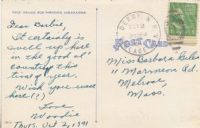 THIS SPACE FOR WRITING MESSAGES
Dear Barbie,
It certainly is
swell up here
in the good ol'
country this
time of year.
Wish you were
here (?)
Love
Woodie
Thurs. Oct 2, 1941
DERRY, N.H.
Post Card
Miss Barbara
11 Marmion Rd.
Melrose,
Mass.